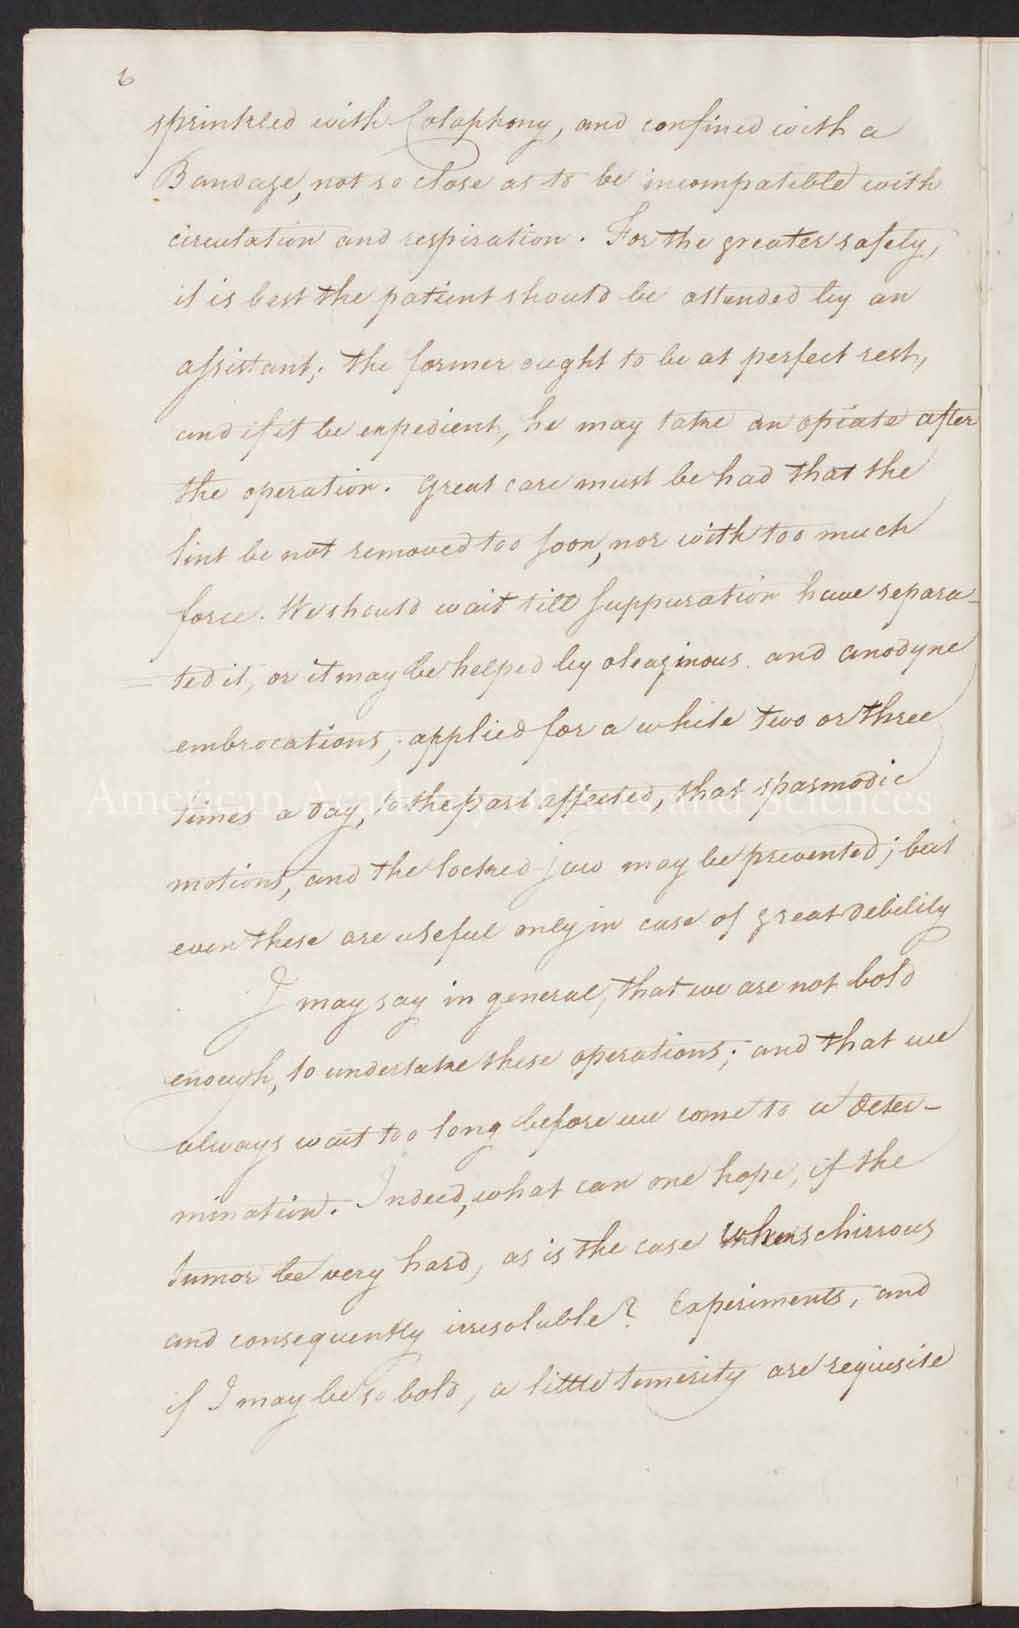 6
sprinkled with Colophony, and confined with a
Bandage, not so close as to be incompatible with
circulation and respiration. For the greater safety,
it is best the patient should be attended by an
assistant; the former ought to be at perfect rest,
and if it be expedient, he may take an opiate after
the operation. Great care must be had that the
lint be not removed too soon, nor with too much
force. We should wait till suppuration have separa-
=ted it, or it may be helped by oleaginous and anodyne
embrocations, applied for a while two or three
times a day, to the part affected, that spasmodic
American Academy of Arts and Sciences
motions, and the locked jaw may be prevented; but
even these are useful only in case of great debility
I may say in general, that we are not bold
enough, to undertake these operations; and that we
always wait too long before we come to a deter-
mination. Indeed, what can one hope, if the
tumor be very hard, as is the case when schirrous
and consequently irresoluble? Experiments, and
if I may be so bold, a little temerity are requisite